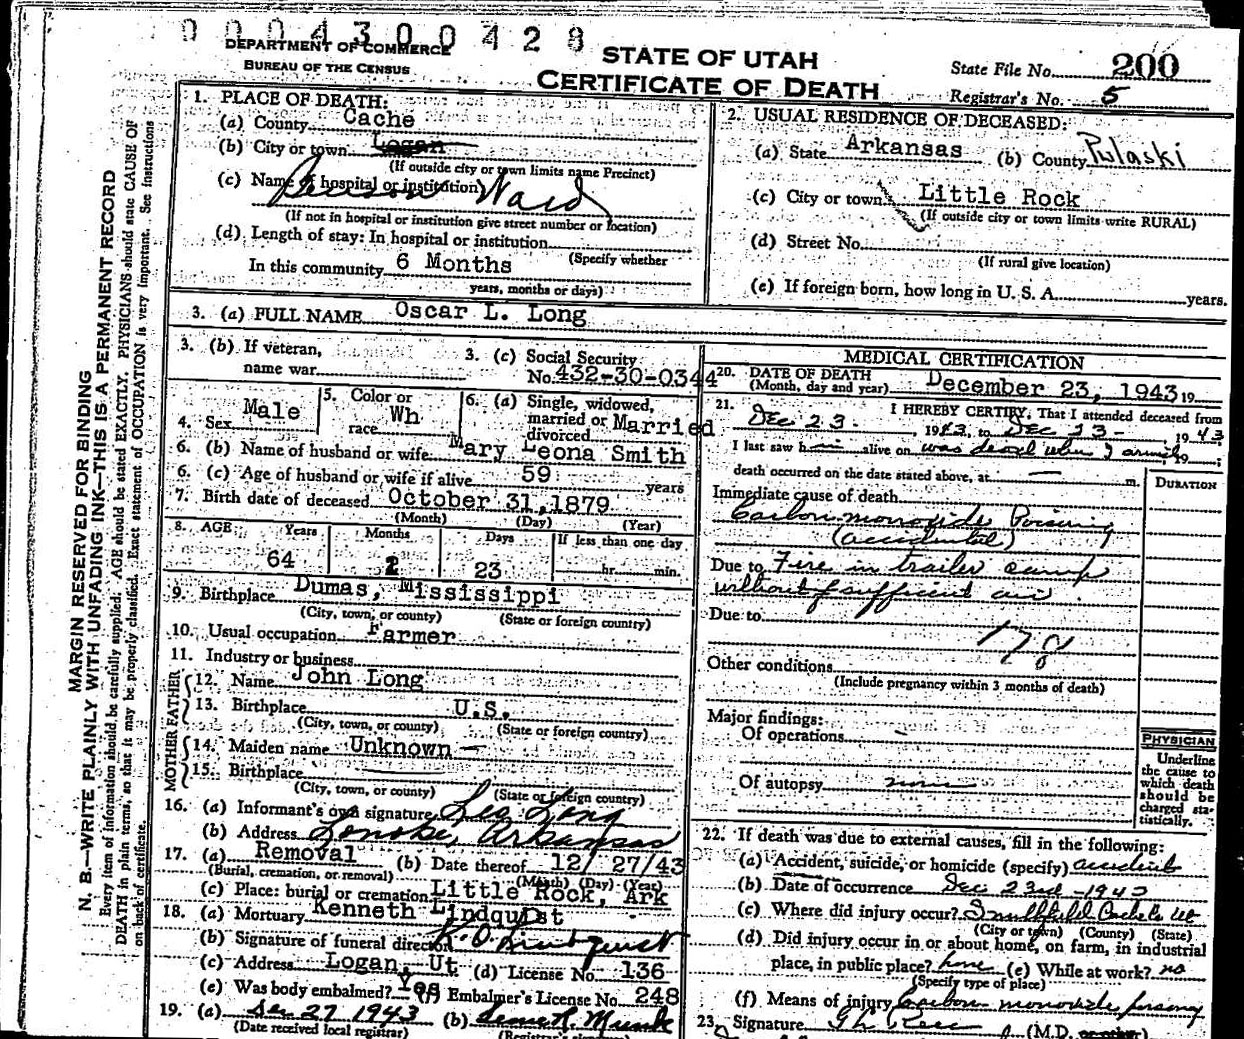 0004300428
DEPARTMENT OF COMMERCE
BUREAU OF THE CENSUS
STATE OF UTAH
CERTIFICATE OF DEATH
State File No. 200
Registrar's No. 5
MARGIN RESERVED FOR BINDING
N. B.—WRITE PLAINLY WITH UNFADING INK—THIS IS A PERMANENT RECORD
Every item of information should be carefully supplied. AGE should be stated EXACTLY. PHYSICIANS should state CAUSE OF
DEATH in plain terms, so that it may be properly classified. Exact statement of OCCUPATION is very important. See instructions
on back of certificate.
1. PLACE OF DEATH:
(a) County Cache
(b) City or town Logan
(If outside city or town limits name Precinct)
(c) Name of hospital or institution Benson Ward
(If not in hospital or institution give street number or location)
(d) Length of stay: In hospital or institution
(Specify whether
In this community 6 Months
years, months or days)
2. USUAL RESIDENCE OF DECEASED:
(a) State Arkansas (b) County Pulaski
(c) City or town Little Rock
(If outside city or town limits write RURAL)
(d) Street No.
(If rural give location)
(e) If foreign born, how long in U. S. A. years.
3. (a) FULL NAME Oscar L. Long
3. (b) If veteran,
name war
3. (c) Social Security
No. 432-30-0344
4. Sex Male
5. Color or
race Wh
6. (a) Single, widowed,
married or
divorced Married
6. (b) Name of husband or wife Mary Leona Smith
6. (c) Age of husband or wife if alive 59 years
7. Birth date of deceased October 31, 1879
(Month) (Day) (Year)
8. AGE Years Months Days If less than one day
64 2 23 hr. min.
9. Birthplace Dumas, Mississippi
(City, town, or county) (State or foreign country)
10. Usual occupation Farmer
11. Industry or business
FATHER
12. Name John Long
13. Birthplace U.S.
(City, town, or county) (State or foreign country)
MOTHER
14. Maiden name Unknown
15. Birthplace
(City, town, or county) (State or foreign country)
16. (a) Informant's own signature Leo Long
(b) Address Lonoke, Arkansas
17. (a) Removal (b) Date thereof 12/ 27/43
(Burial, cremation, or removal) (Month) (Day) (Year)
(c) Place: burial or cremation Little Rock, Ark
18. (a) Mortuary Kenneth Lindquist
(b) Signature of funeral director K. O. Lindquist
(c) Address Logan, Ut. (d) License No. 136
(e) Was body embalmed? Yes (f) Embalmer's License No. 248
19. (a) Dec 27 1943 (b)
(Date received local registrar) (Registrar's signature)
MEDICAL CERTIFICATION
20. DATE OF DEATH
(Month, day and year) December 23, 1943 19
21. I HEREBY CERTIFY, That I attended deceased from
Dec 23 1943, to Dec 23 - 1943
I last saw him alive on was dead when I arrived, 19 ;
death occurred on the date stated above, at — m.
DURATION
Immediate cause of death
Carbon monoxide Poisoning
(accidental)
Due to Fire in trailer camp
without sufficient air.
Due to
178
Other conditions
(Include pregnancy within 3 months of death)
Major findings:
Of operations
Of autopsy none
PHYSICIAN
Underline
the cause to
which death
should be
charged sta-
tistically.
22. If death was due to external causes, fill in the following:
(a) Accident, suicide, or homicide (specify) accident
(b) Date of occurrence Dec 23rd - 1943
(c) Where did injury occur? Smithfield Cache Co Ut
(City or town) (County) (State)
(d) Did injury occur in or about home, on farm, in industrial
place, in public place? home (e) While at work? no
(Specify type of place)
(f) Means of injury Carbon monoxide poisoning
23. Signature (M.D. or other)